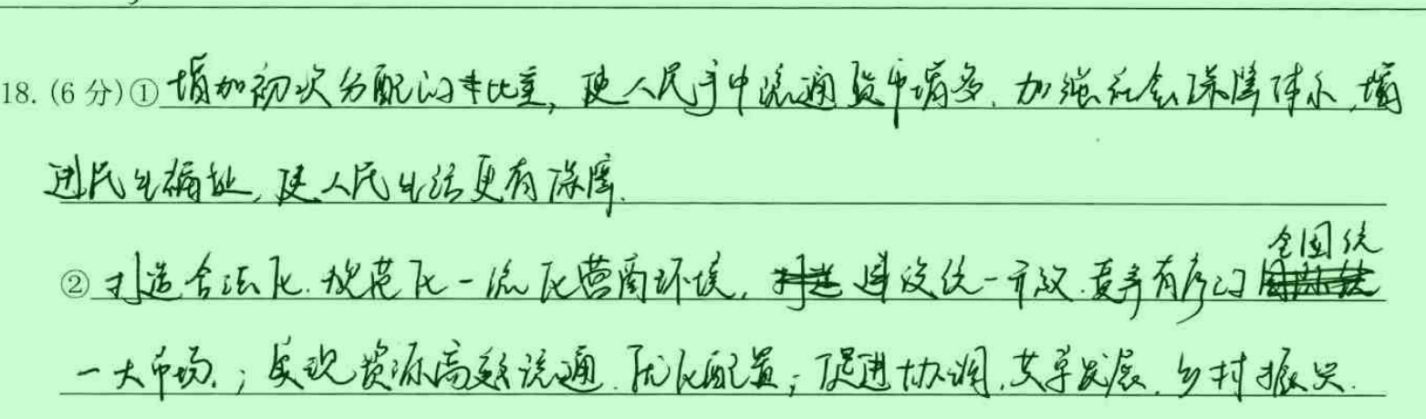 18. (6 分) ① 增加初次分配的比重, 使人民手中流通货币增多. 加强社会保障体系, 增
进民生福祉, 使人民生活更有保障.
② 打造合法化. 规范化一流化营商环境, 建设统一开放. 竞争有序的全国统
一大市场.; 实现资源高效流通. 优化配置; 促进协调. 共享发展. 乡村振兴.